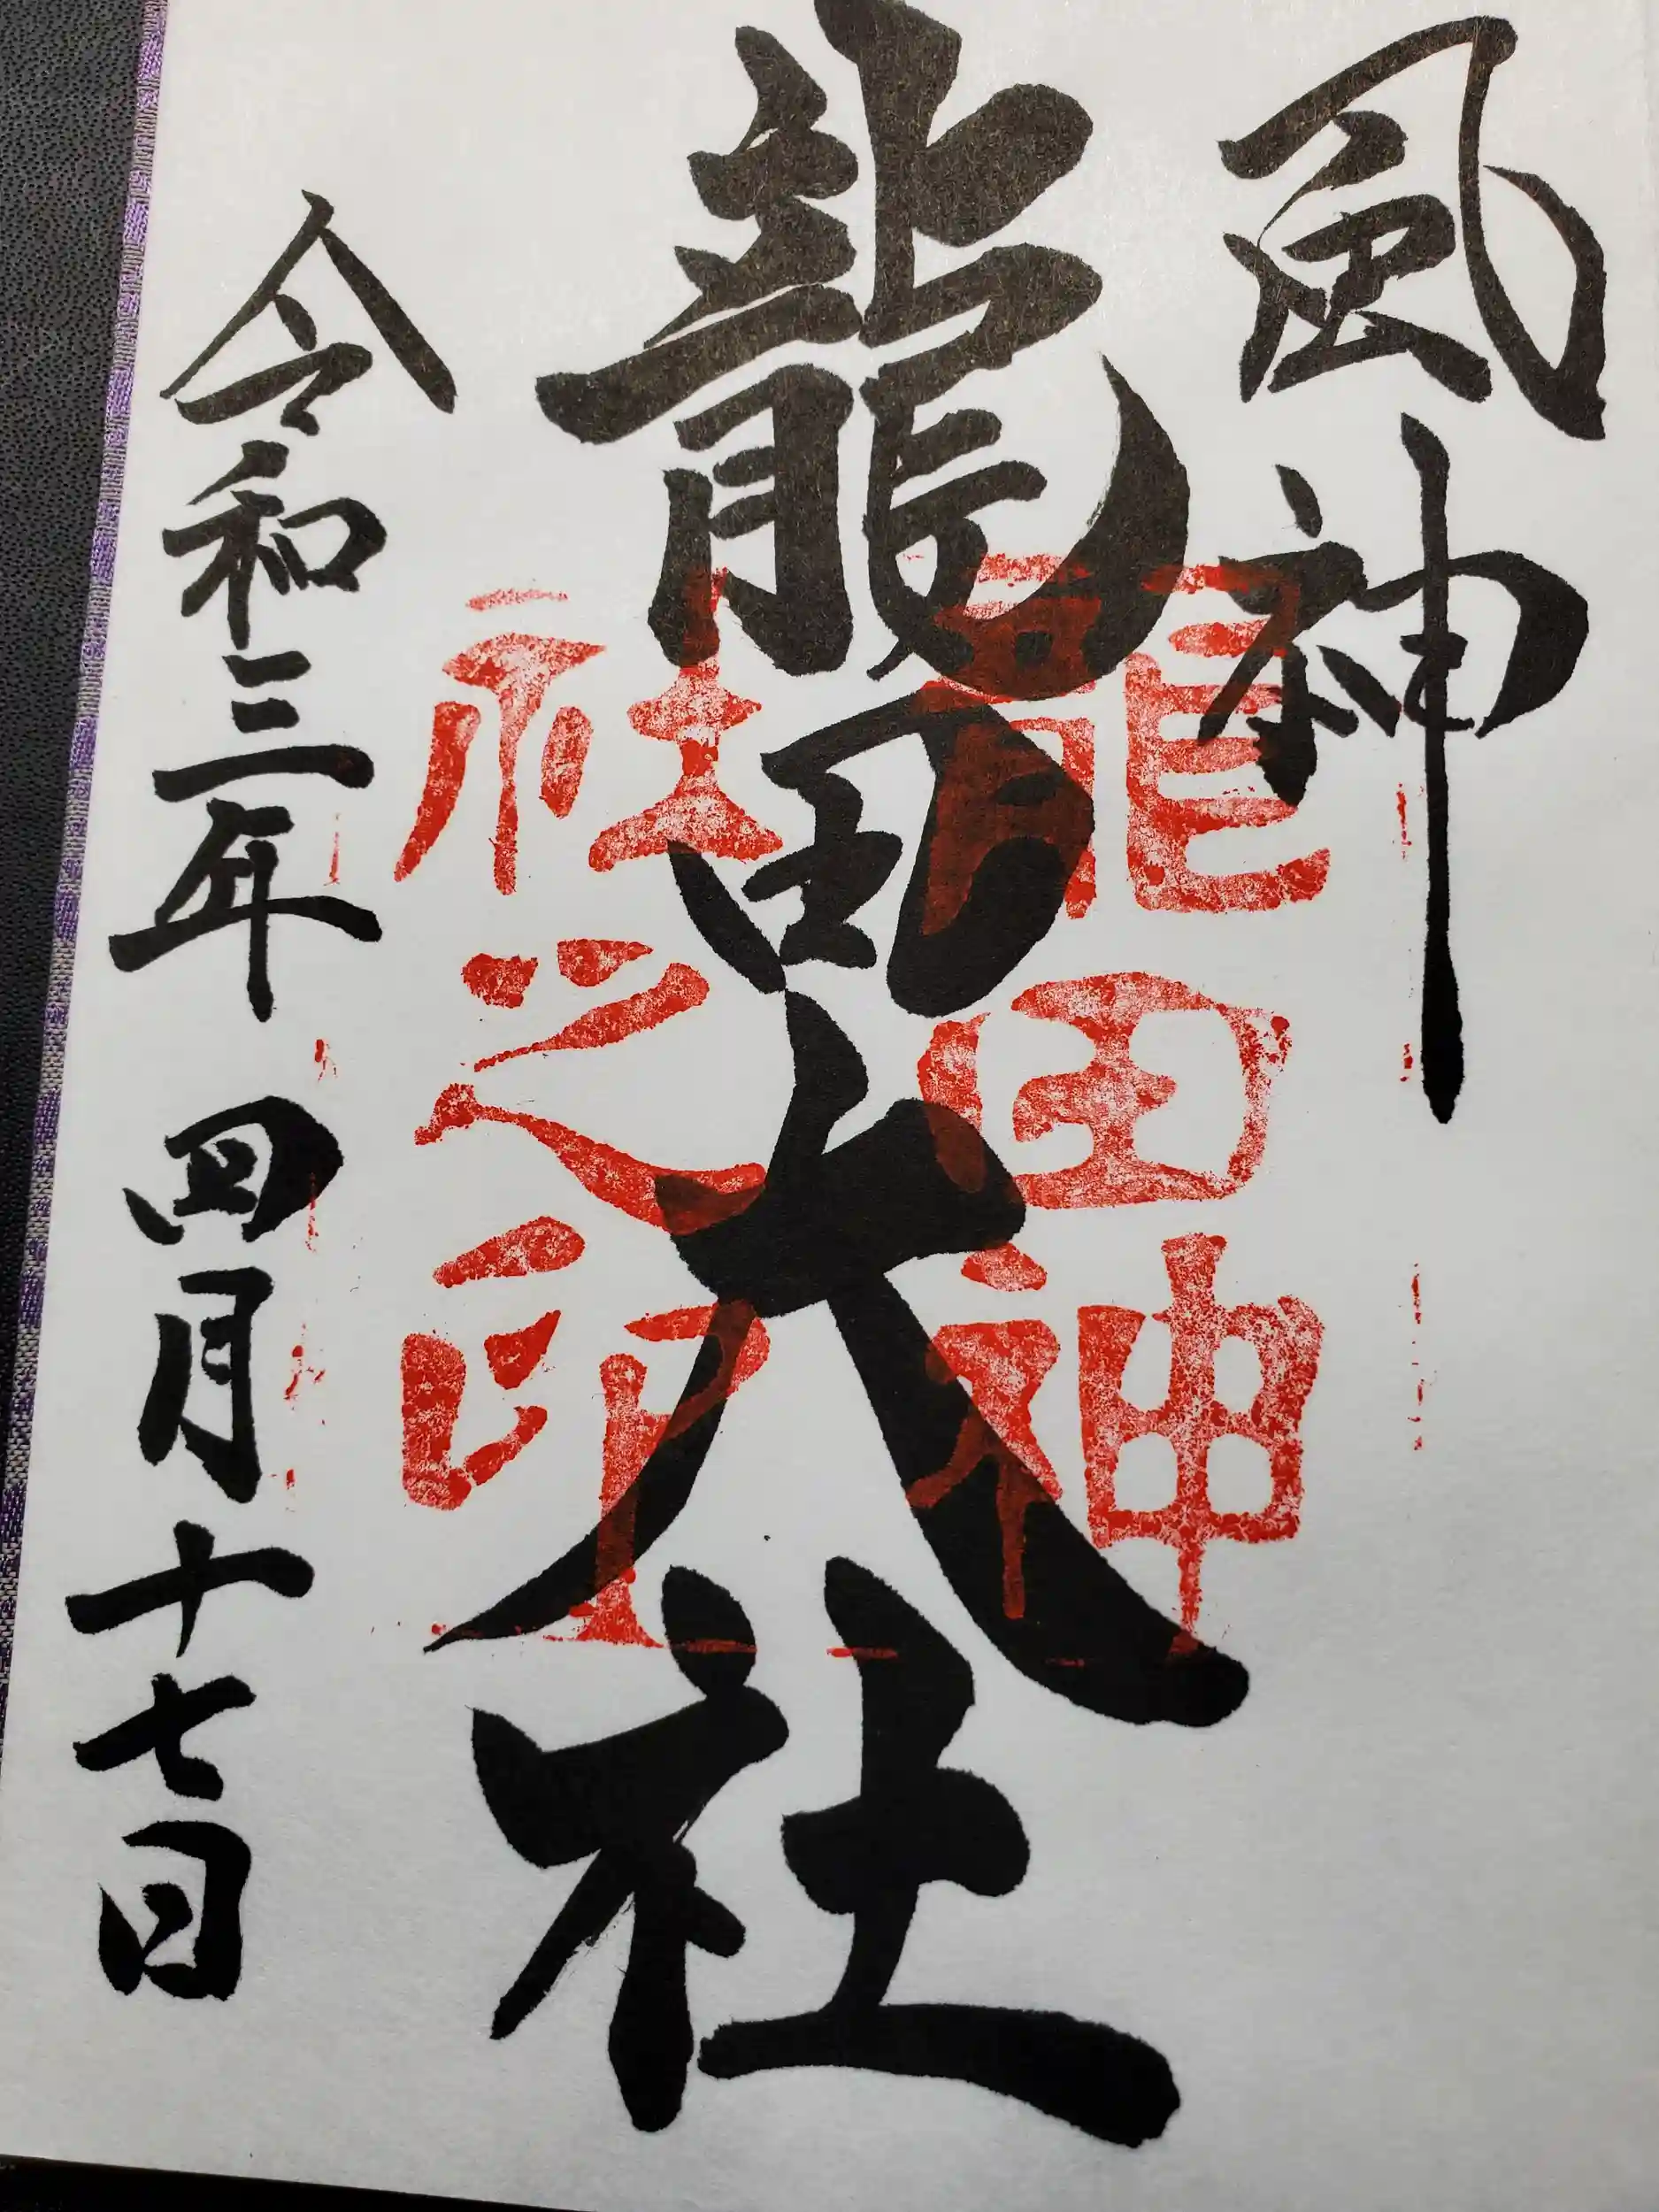 風神
龍田大社
令和三年 四月十七日
龍田神
社之印